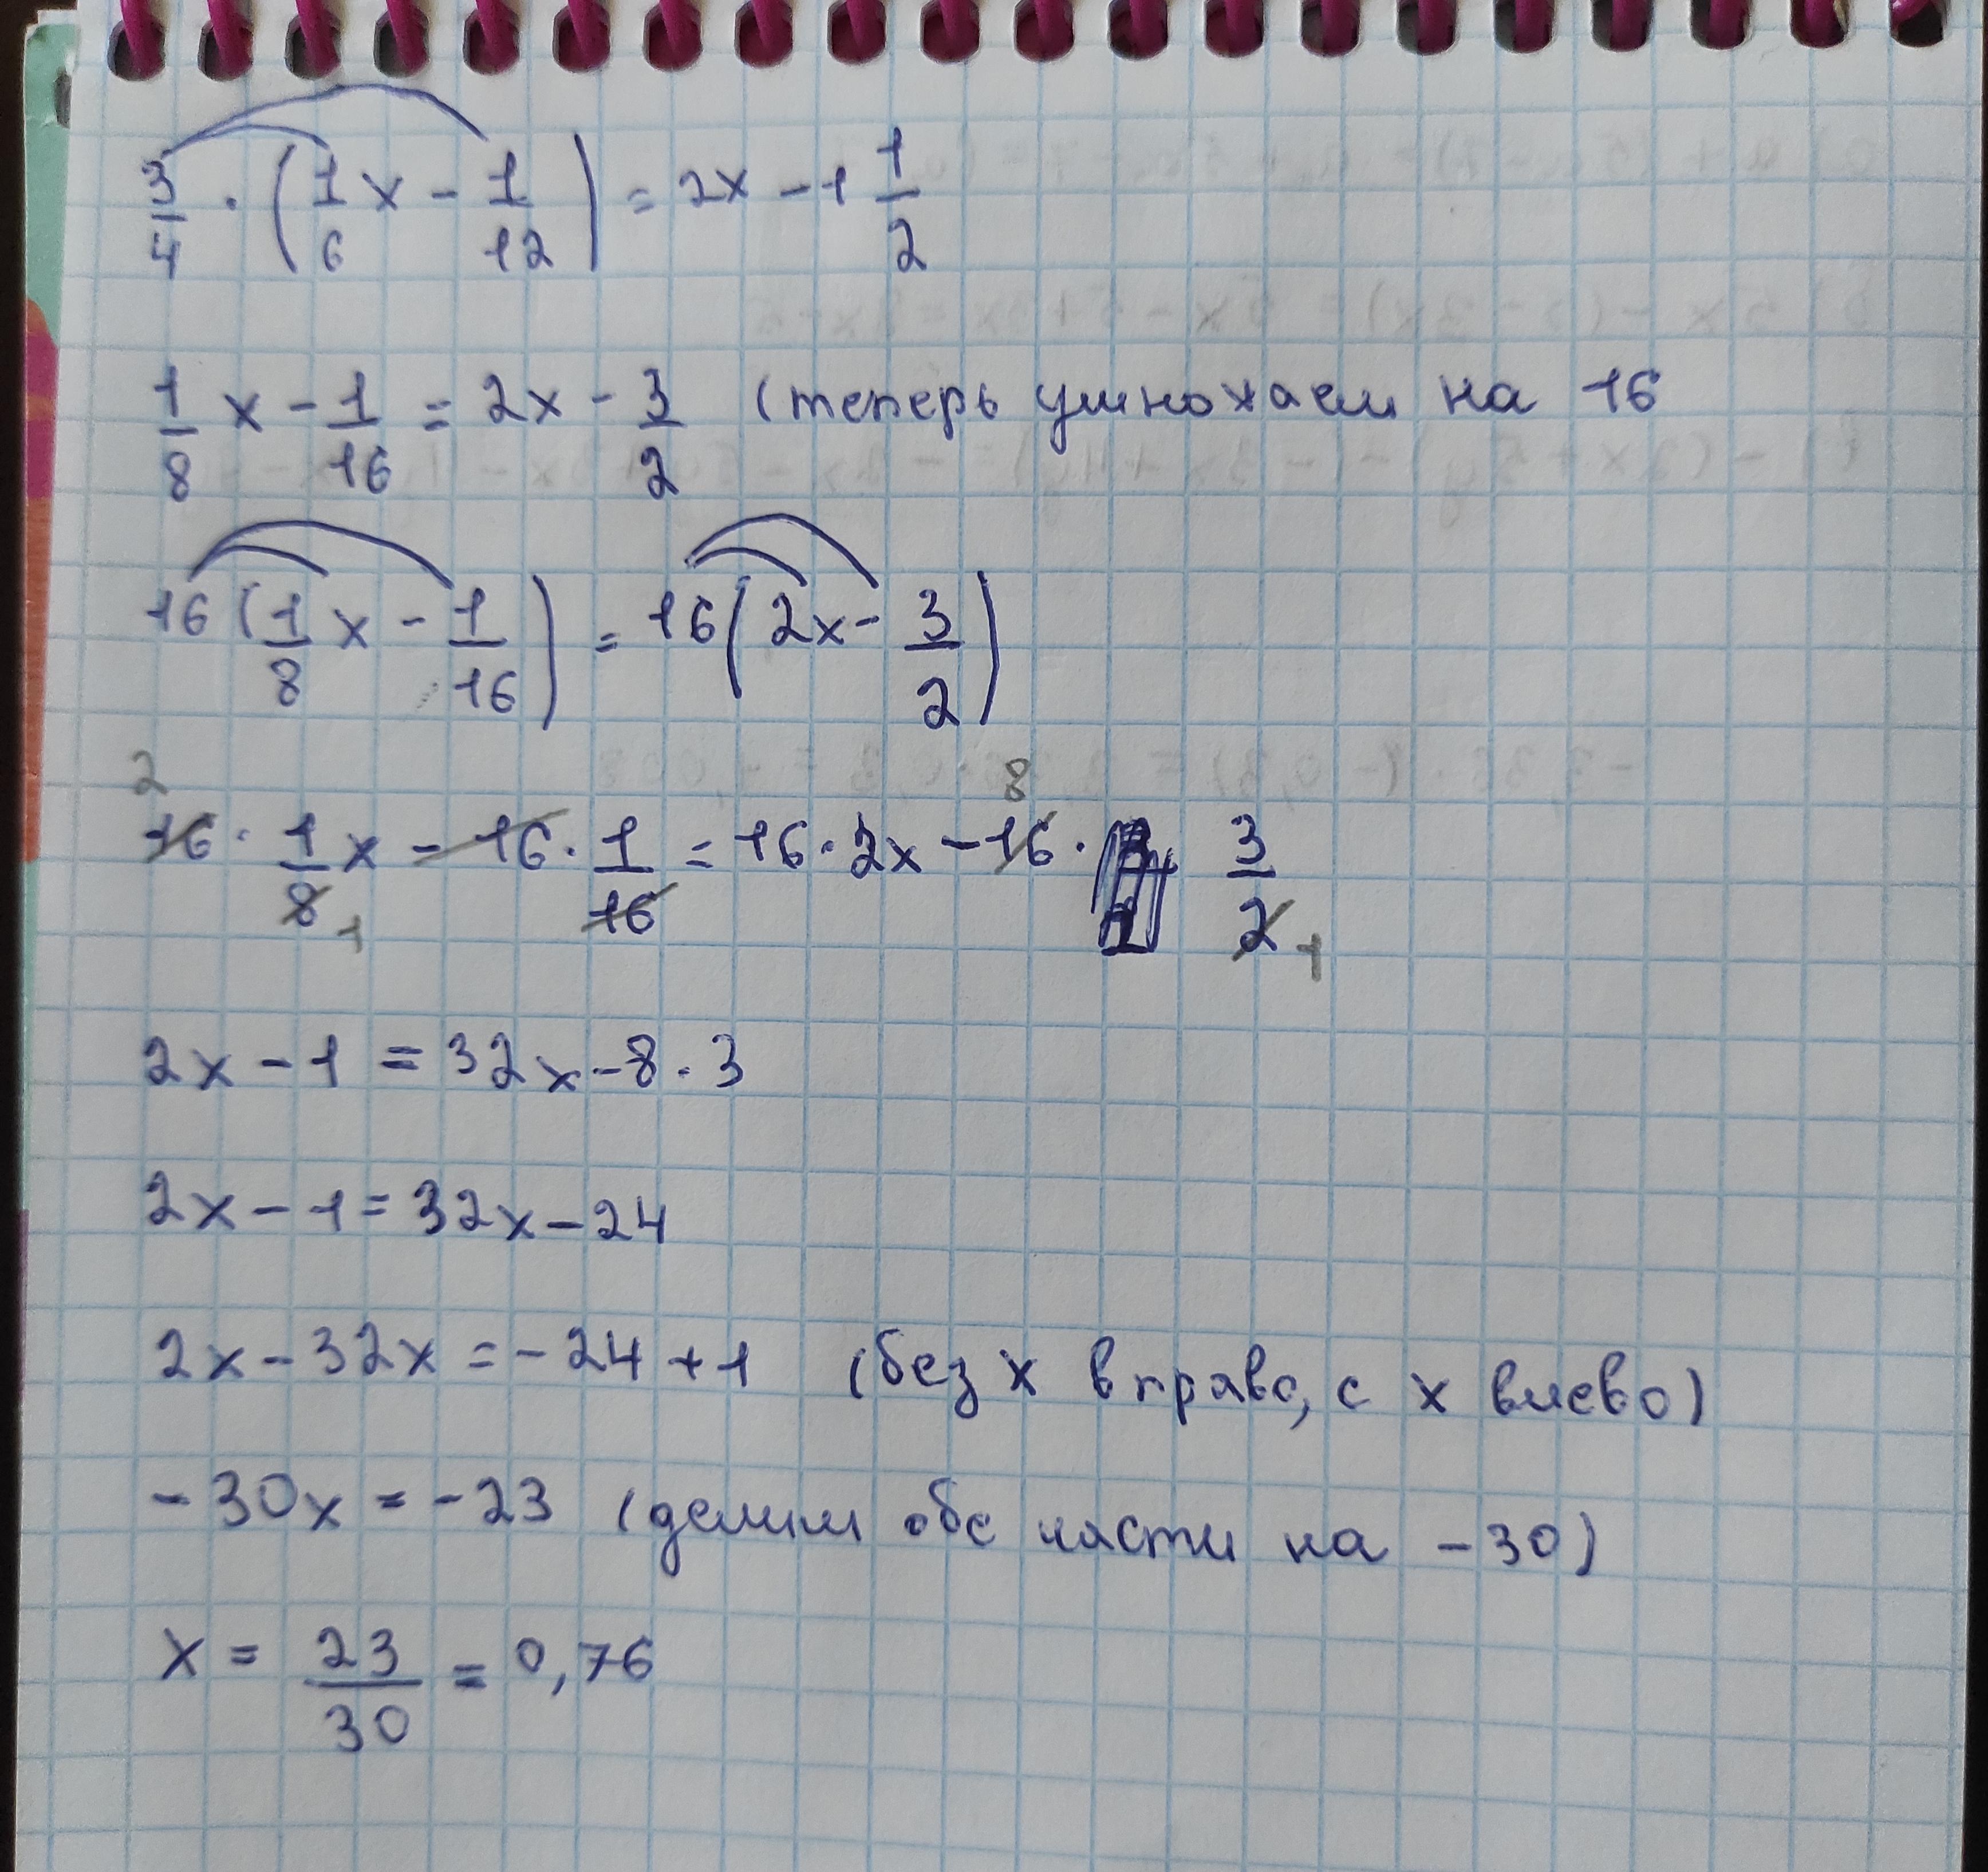 3/4 · (1/6 x - 1/12) = 2x - 1 1/2
1/8 x - 1/16 = 2x - 3/2 (теперь умножаем на 16
16(1/8 x - 1/16) = 16(2x - 3/2)
2 8
16 · 1/8 x - 16 · 1/16 = 16 · 2x - 16 · 3/2
1 1
2x - 1 = 32x - 8 · 3
2x - 1 = 32x - 24
2x - 32x = - 24 + 1 (без x вправо, с x влево)
- 30x = - 23 (делим обе части на - 30)
x = 23/30 = 0,76